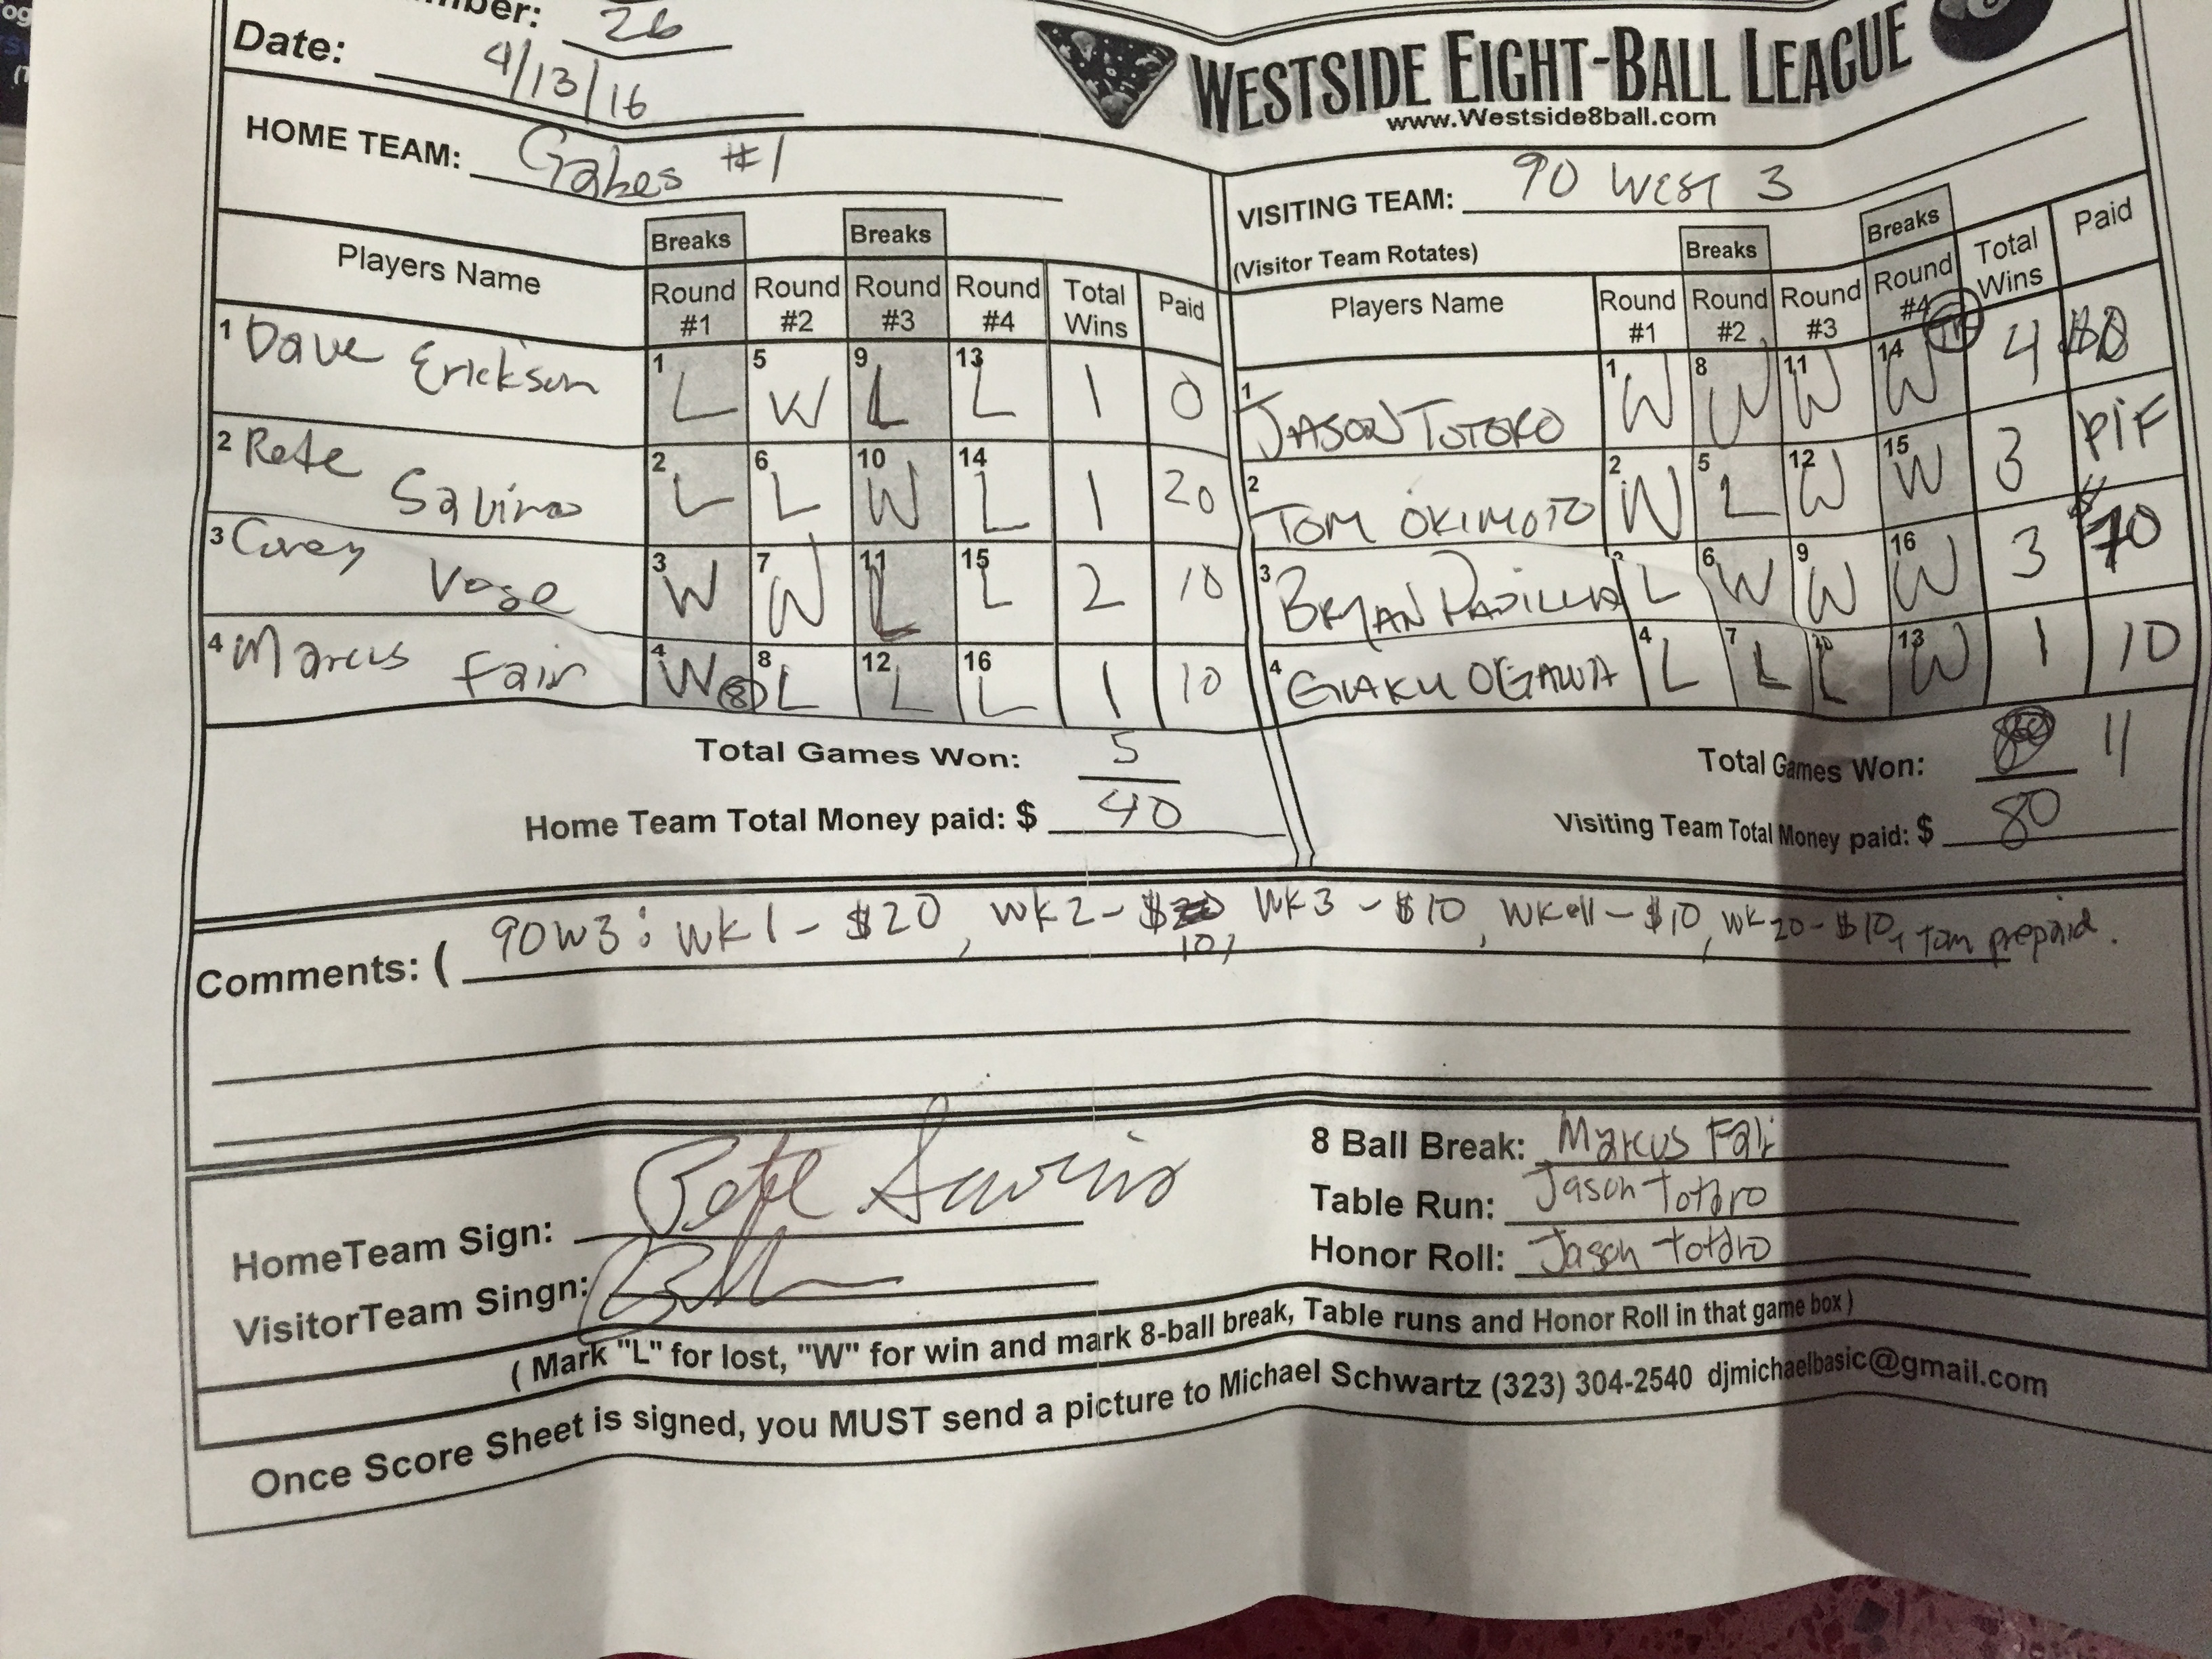 mber: 26
Date: 4/13/16
WESTSIDE EIGHT-BALL LEAGUE
www.Westside8ball.com
HOME TEAM: Gabes #1
VISITING TEAM: 90 WEST 3
(Visitor Team Rotates)
Breaks Breaks
Players Name Round #1 Round #2 Round #3 Round #4 Total Wins Paid
1 Dave Erickson 1 L 5 W 9 L 13 L 1 0
2 Pete Savino 2 L 6 L 10 W 14 L 1 20
3 Corey Vose 3 W 7 W 11 L 15 L 2 10
4 Marcus Fair 4 W 8 8 L 12 L 16 L 1 10
Total Games Won: 5
Home Team Total Money paid: $ 40
Breaks Breaks
Players Name Round #1 Round #2 Round #3 Round #4 Total Wins Paid
1 JASON TOTORO 1 W 8 W 11 W 14 W TR 4
2 TOM OKIMOTO 2 W 5 L 12 W 15 W 3 PIF
3 BRYAN PADILLA 3 L 6 W 9 W 16 W 3 $70
4 GAKU OGAWA 4 L 7 L 10 L 13 W 1 10
Total Games Won: 11
Visiting Team Total Money paid: $ 80
Comments: ( 90W3: wk1 - $20, wk2 - $10, wk3 - $10, wk11 - $10, wk20 - $10, Tom prepaid.
HomeTeam Sign: Pete Savino
VisitorTeam Singn:
8 Ball Break: Marcus Fair
Table Run: Jason Totoro
Honor Roll: Jason Totoro
( Mark "L" for lost, "W" for win and mark 8-ball break, Table runs and Honor Roll in that game box )
Once Score Sheet is signed, you MUST send a picture to Michael Schwartz (323) 304-2540 djmichaelbasic@gmail.com